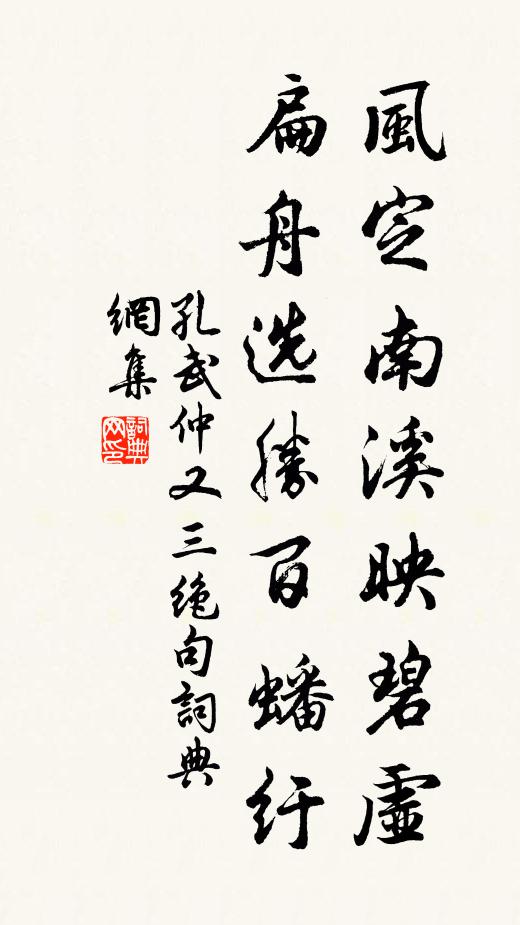 風定南溪映碧虛
扁舟选勝百蟠紆
孔武仲又三绝句詞典
網集
詞典
网印